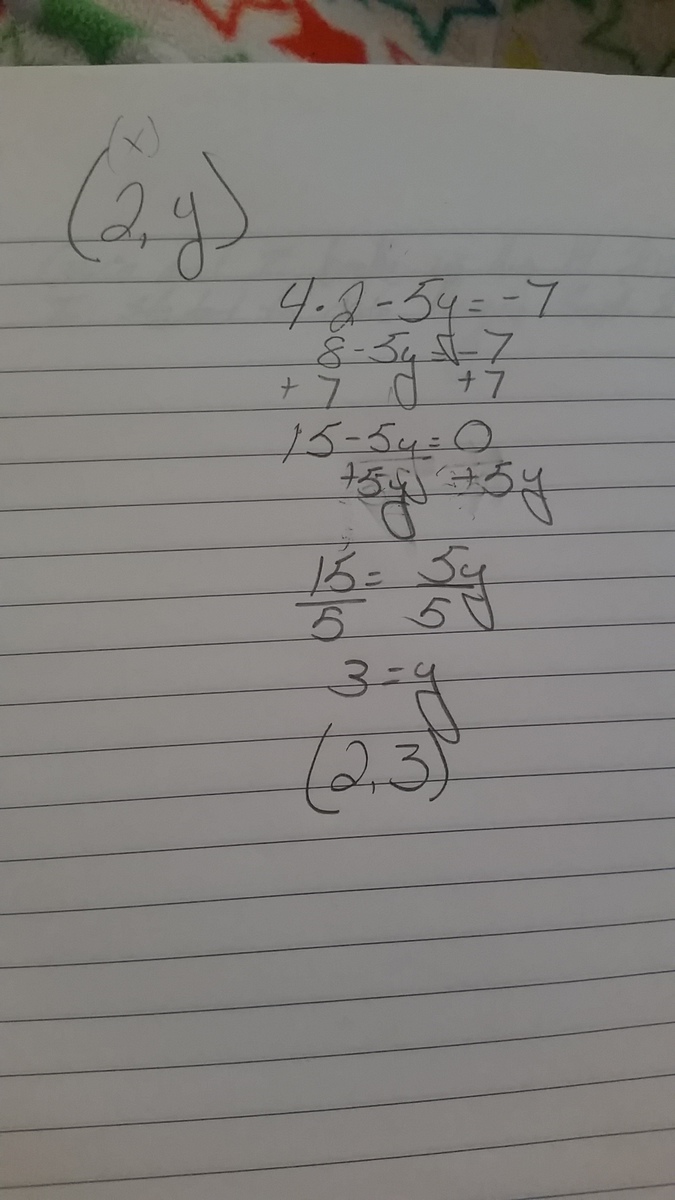 (x)
(2, y)
4·2-5y=-7
8-5y=-7
+7 +7
15-5y=0
+5y +5y
15/5 = 5y/5
3=y
(2,3)